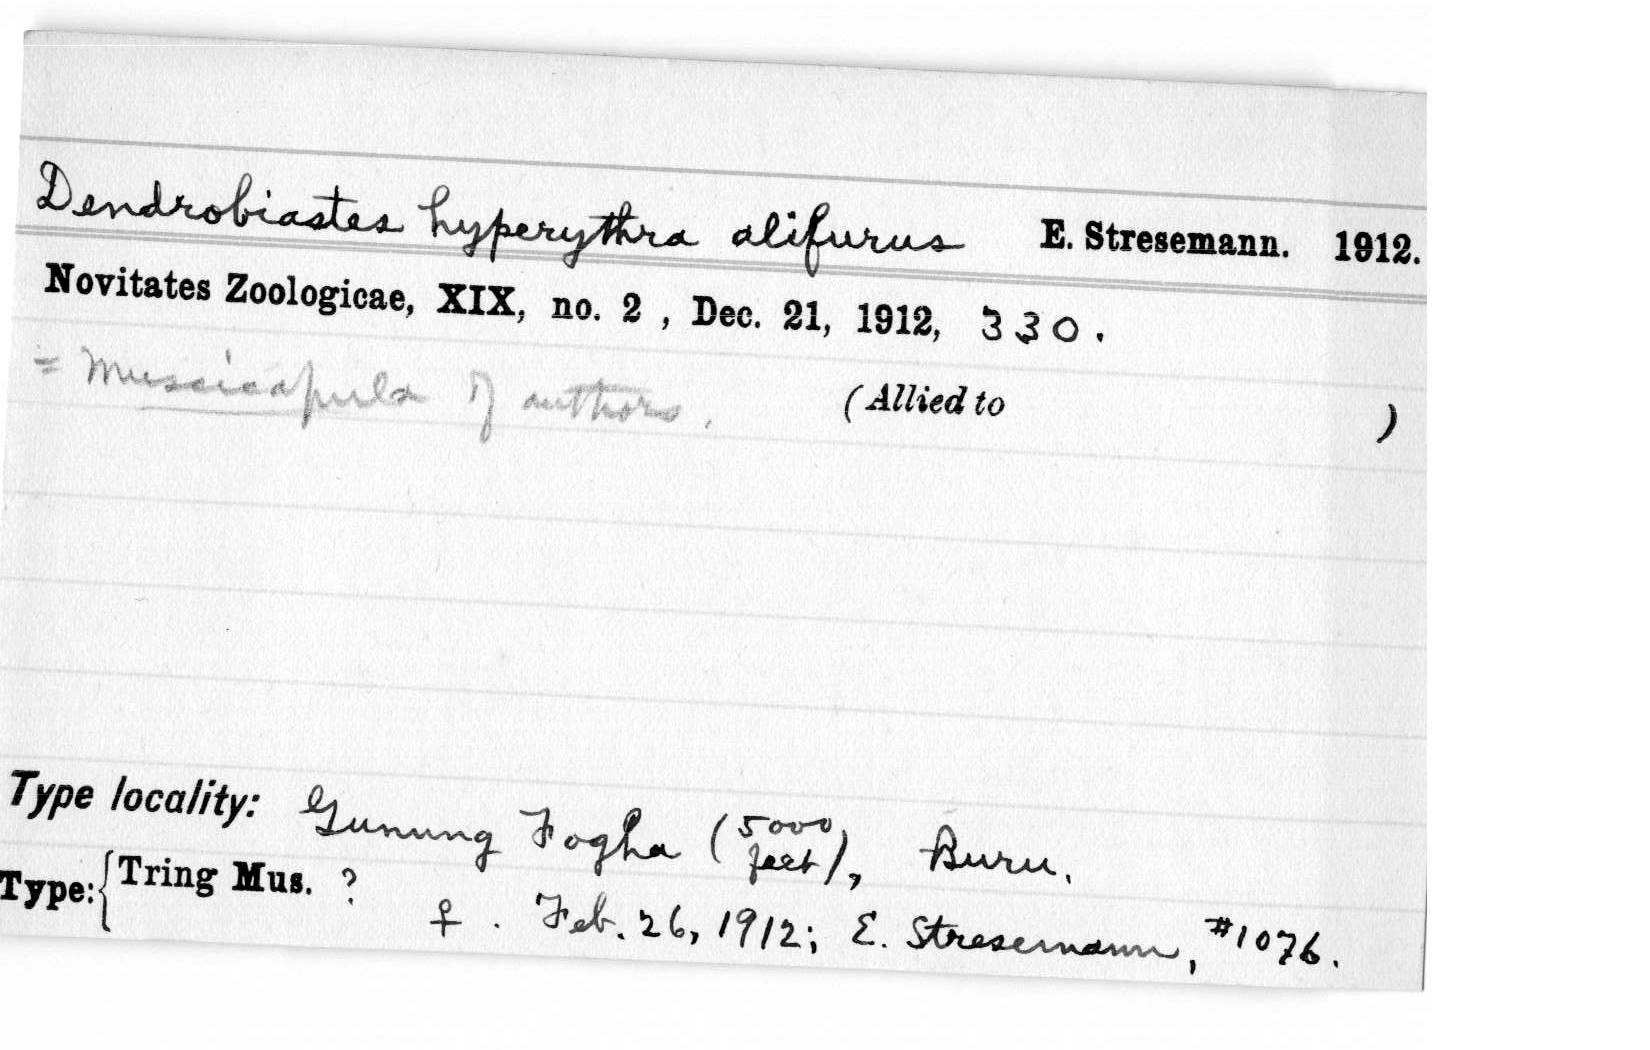 Dendrobiastes hyperythra alifurus E. Stresemann. 1912.
Novitates Zoologicae, XIX, no. 2 , Dec. 21, 1912, 330.
= Muscicapula of authors. (Allied to )
Type locality: Gunung Fogha (5000 feet), Buru.
Type: { Tring Mus. ?
♀ . Feb. 26, 1912; E. Stresemann, #1076.